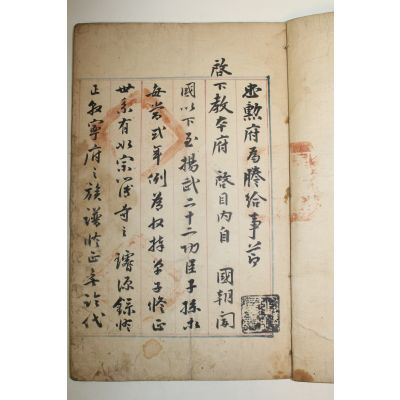 忠勳府爲謄給事節
啓下敎本府 啓目內自 國朝開
國以下至揚武二十二功臣子孫
每當式年例爲收捧單子修正
世系有如宗簿寺之璿源錄修
正敦寧府之族譜修正是
代